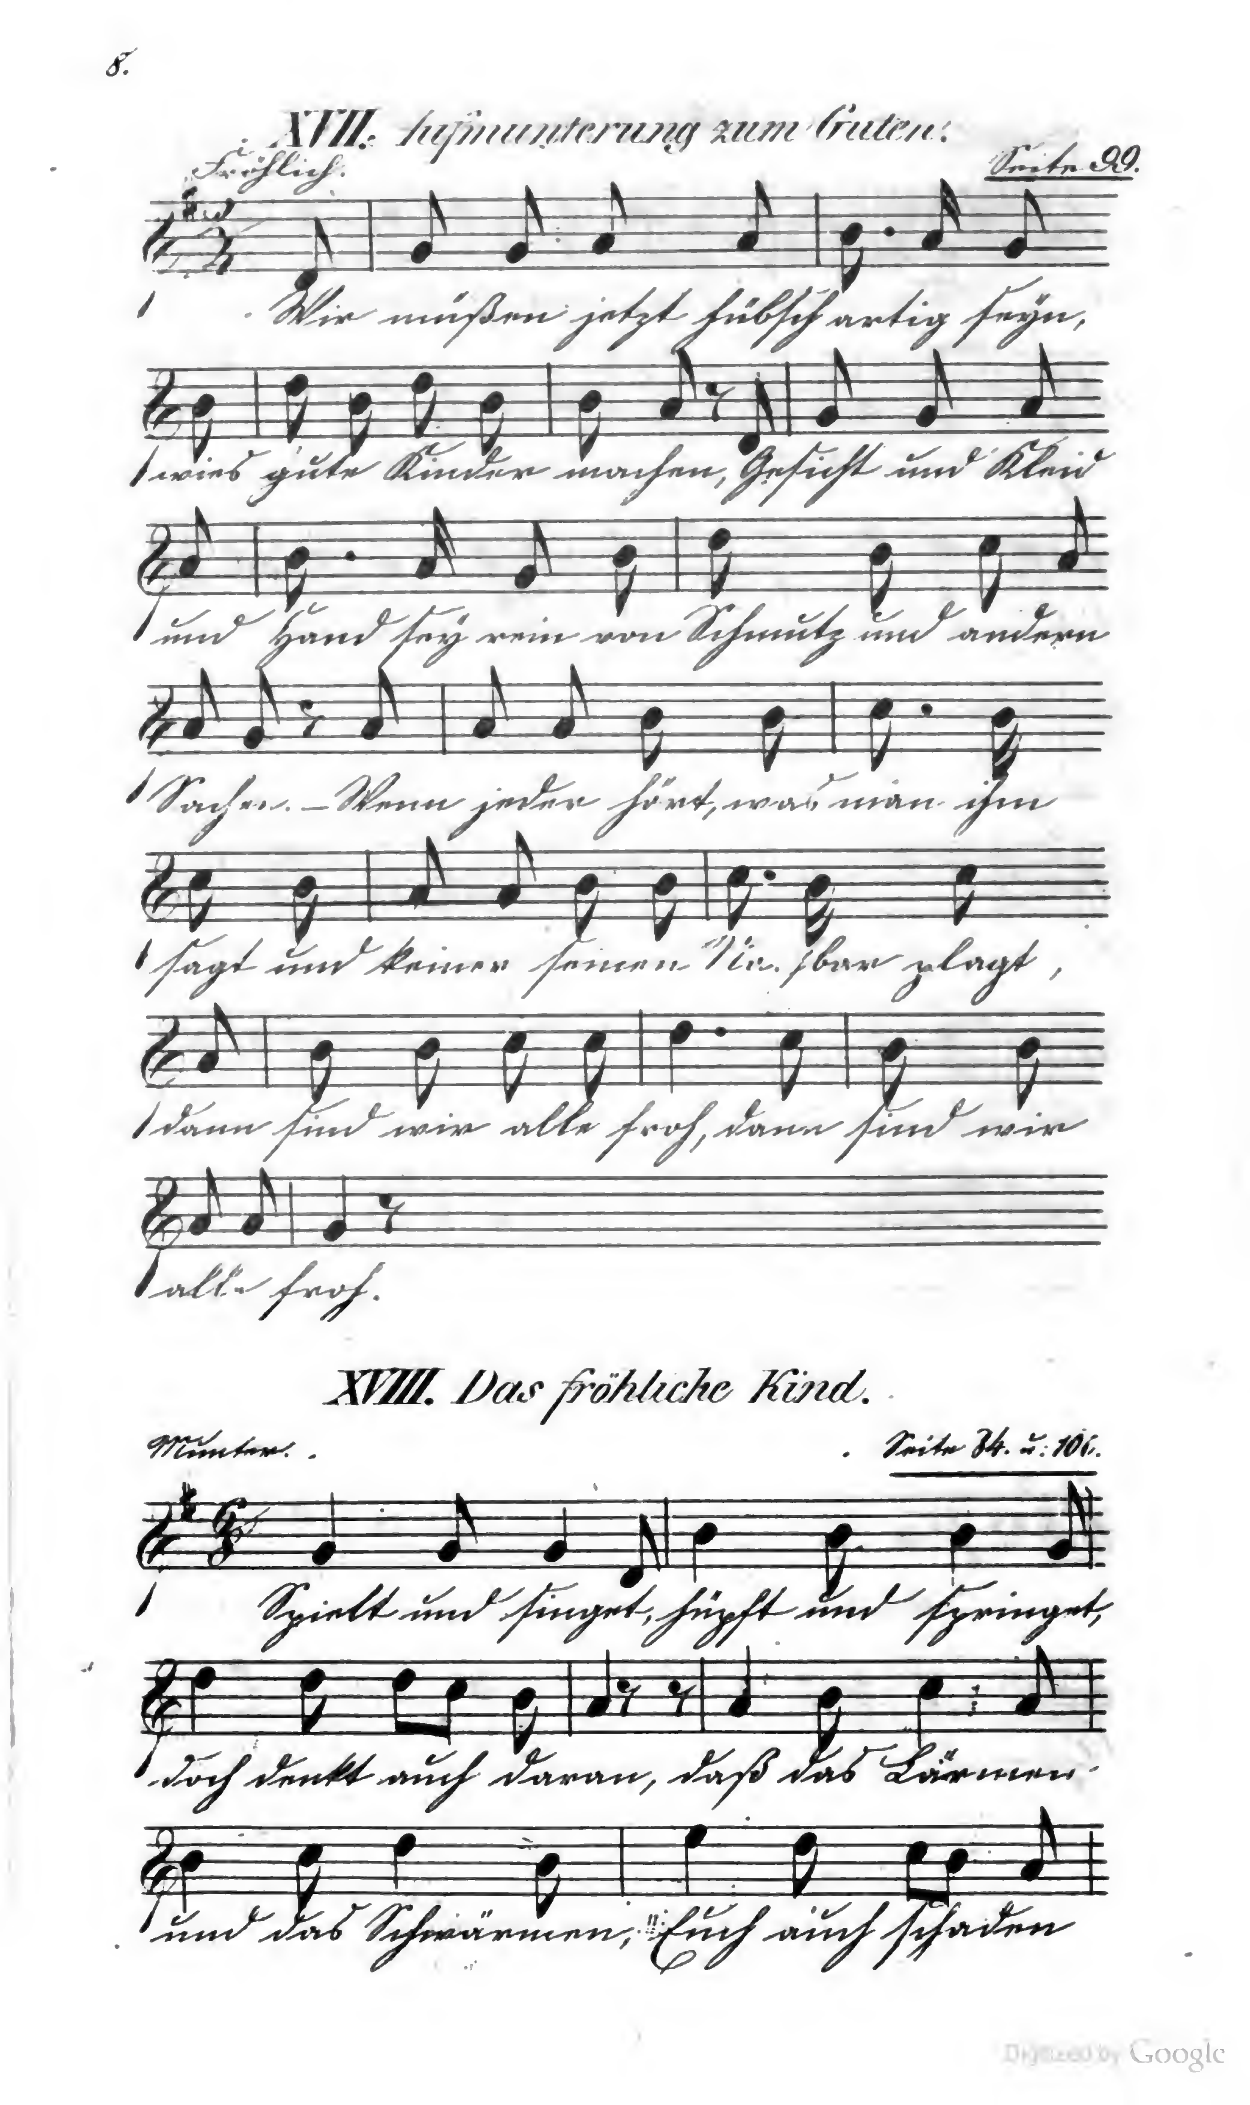 8.
XVII. Aufmunterung zum Guten.
Fröhlich.
Seite 99.
Wir müßen jetzt hübsch artig seyn,
wies gute Kinder machen, Gesicht und Kleid
und Hand sey rein von Schmutz und andern
Sachen. – Wenn jeder hört, was man ihm
sagt und keiner seinen Nachbar plagt,
dann sind wir alle froh, dann sind wir
alle froh.
XVIII. Das fröhliche Kind.
Munter.
Seite 84. u: 106.
Spielt und singet, hüpft und springet,
doch denkt auch daran, daß das Lärmen
und das Schwärmen, Euch auch schaden
Digitized by Google